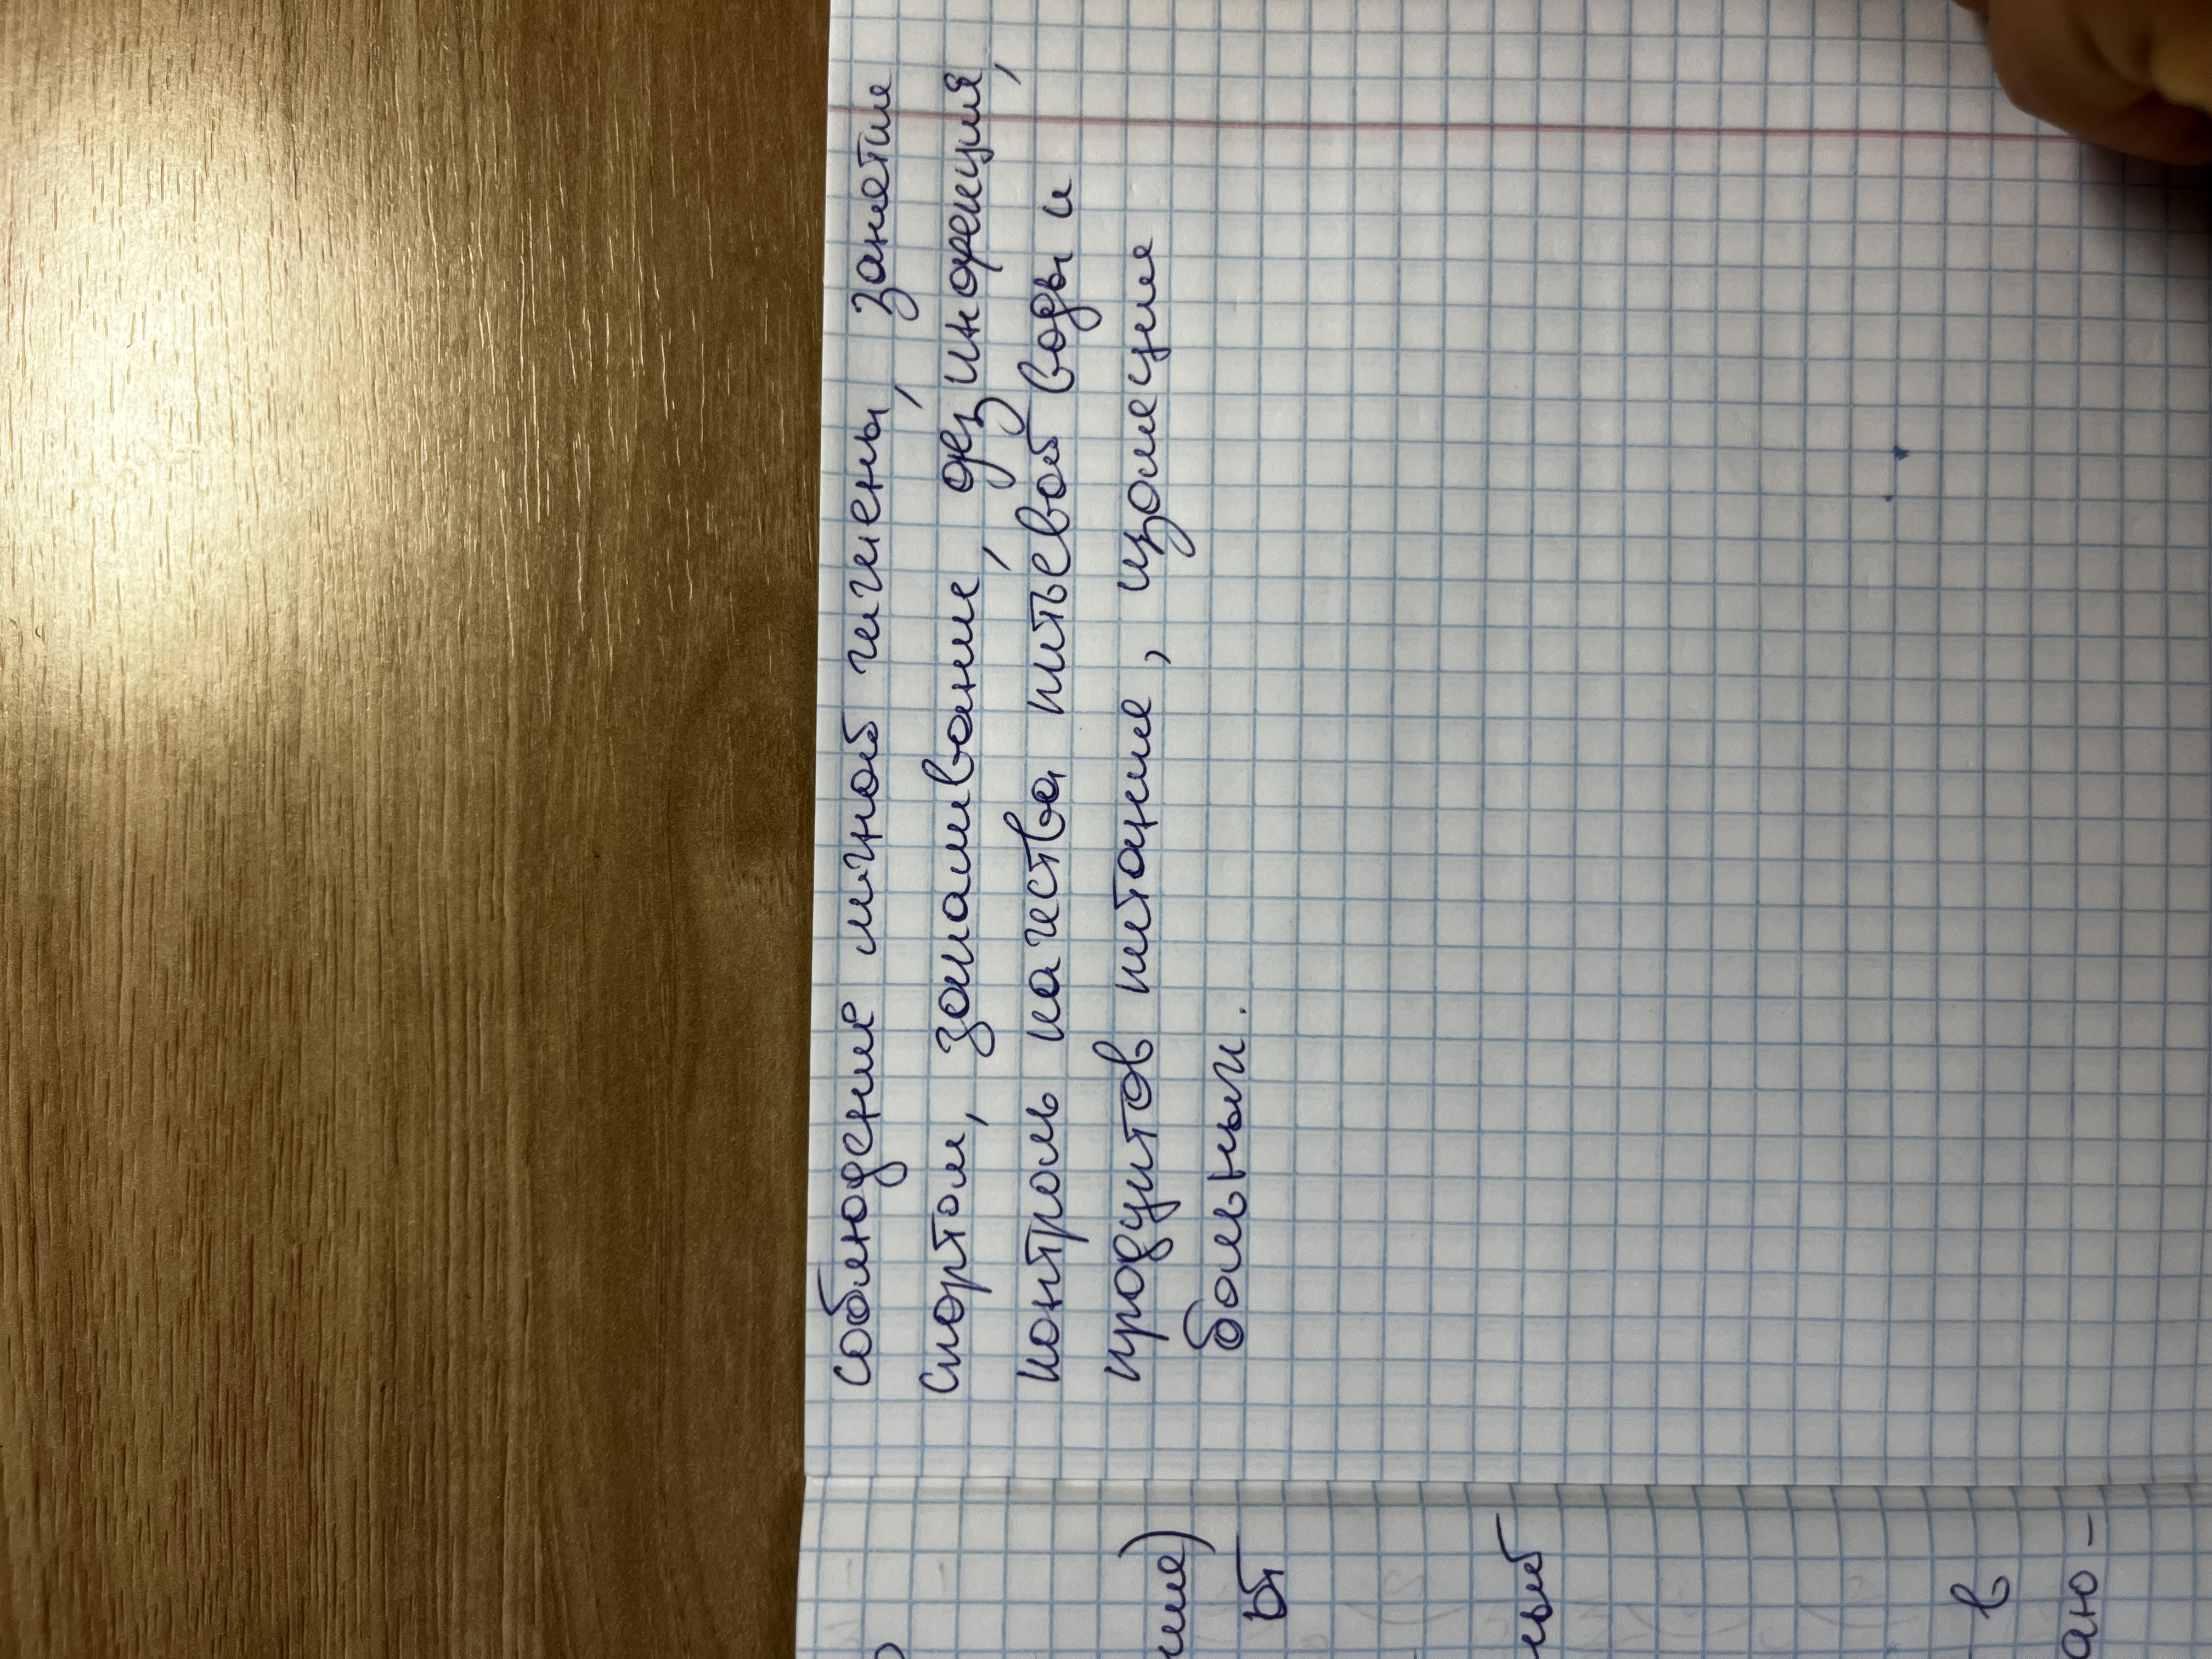 соблюдение личной гигиены, занетие
спортом, закаливание, дезинфекция,
контроль качества питьевой воды и
продуктов питание, изолецие
больным.
ние)
ный
в
аю-